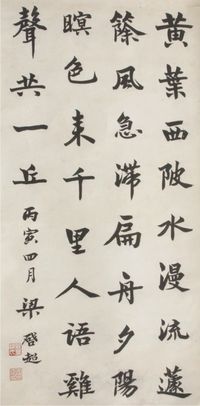 黃葉西陂水漫流蘧
篨風急滯扁舟夕陽
暝色来千里人語雞
聲共一丘 丙寅四月梁啓超